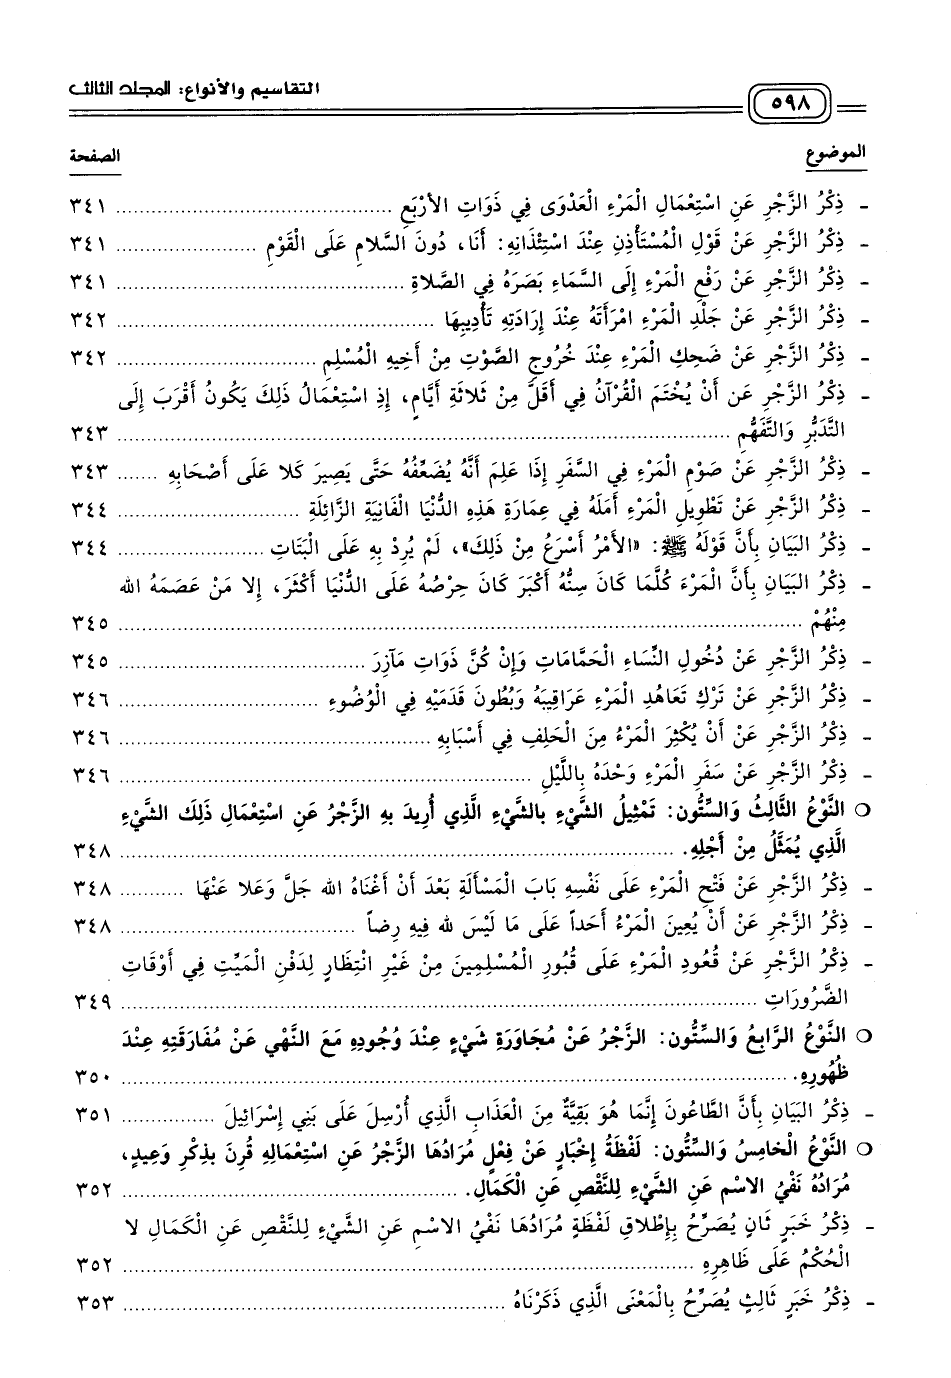 التقاسيم والأنواع: المجلد الثالث
٥٩٨
الموضوع الصفحة
- ذِكْرُ الزَّجْرِ عَنِ اسْتِعْمَالِ الْمَرْءِ الْعَدْوَى فِي ذَوَاتِ الأَرْبَعِ ........ ٣٤١
- ذِكْرُ الزَّجْرِ عَنْ قَوْلِ الْمُسْتَأْذِنِ عِنْدَ اسْتِئْذَانِهِ: أَنَا، دُونَ السَّلَامِ عَلَى الْقَوْمِ ........ ٣٤١
- ذِكْرُ الزَّجْرِ عَنْ رَفْعِ الْمَرْءِ إِلَى السَّمَاءِ بَصَرَهُ فِي الصَّلَاةِ ........ ٣٤١
- ذِكْرُ الزَّجْرِ عَنْ جَلْدِ الْمَرْءِ امْرَأَتَهُ عِنْدَ إِرَادَتِهِ تَأْدِيبَهَا ........ ٣٤٢
- ذِكْرُ الزَّجْرِ عَنْ ضَحِكِ الْمَرْءِ عِنْدَ خُرُوجِ الصَّوْتِ مِنْ أَخِيهِ الْمُسْلِمِ ........ ٣٤٢
- ذِكْرُ الزَّجْرِ عَن أَنْ يُخْتَمَ الْقُرْآنُ فِي أَقَلَّ مِنْ ثَلاثَةِ أَيَّامٍ، إِذِ اسْتِعْمَالُ ذَلِكَ يَكُونُ أَقْرَبَ إِلَى
التَّدَبُّرِ وَالتَّفَهُّمِ ........ ٣٤٣
- ذِكْرُ الزَّجْرِ عَنْ صَوْمِ الْمَرْءِ فِي السَّفَرِ إِذَا عَلِمَ أَنَّهُ يُضَعِّفُهُ حَتَّى يَصِيرَ كَلا عَلَى أَصْحَابِهِ ....... ٣٤٣
- ذِكْرُ الزَّجْرِ عَنْ تَطْوِيلِ الْمَرْءِ أَمَلَهُ فِي عِمَارَةِ هَذِهِ الدُّنْيَا الْفَانِيَةِ الزَّائِلَةِ ........ ٣٤٤
- ذِكْرُ الْبَيَانِ بِأَنَّ قَوْلَهُ ﷺ: «الأَمْرُ أَسْرَعُ مِنْ ذَلِكَ»، لَمْ يُرِدْ بِهِ عَلَى الْبَتَاتِ ........ ٣٤٤
- ذِكْرُ البَيَانِ بِأَنَّ الْمَرْءَ كُلَّمَا كَانَ سِنُّهُ أَكْبَرَ كَانَ حِرْصُهُ عَلَى الدُّنْيَا أَكْثَرَ، إِلا مَنْ عَصَمَهُ الله
مِنْهُمْ ........ ٣٤٥
- ذِكْرُ الزَّجْرِ عَنْ دُخُولِ النِّسَاءِ الْحَمَّامَاتِ وَإِنْ كُنَّ ذَوَاتِ مَآزِرَ ........ ٣٤٥
- ذِكْرُ الزَّجْرِ عَنْ تَرْكِ تَعَاهُدِ الْمَرْءِ عَرَاقِيبَهُ وَبُطُونَ قَدَمَيْهِ فِي الْوُضُوءِ ........ ٣٤٦
- ذِكْرُ الزَّجْرِ عَنْ أَنْ يُكْثِرَ الْمَرْءُ مِنَ الْحَلِفِ فِي أَسْبَابِهِ ........ ٣٤٦
- ذِكْرُ الزَّجْرِ عَنْ سَفَرِ الْمَرْءِ وَحْدَهُ بِاللَّيْلِ ........ ٣٤٦
○ النَّوْعُ الثَّالِثُ وَالسِّتُّونَ: تَمْثِيلُ الشَّيْءِ بِالشَّيْءِ الَّذِي أُرِيدَ بِهِ الزَّجْرُ عَنِ اسْتِعْمَالِ ذَلِكَ الشَّيْءِ
الَّذِي يُمَثَّلُ مِنْ أَجْلِهِ. ........ ٣٤٨
- ذِكْرُ الزَّجْرِ عَنْ فَتْحِ الْمَرْءِ عَلَى نَفْسِهِ بَابَ الْمَسْأَلَةِ بَعْدَ أَنْ أَغْنَاهُ الله جَلَّ وَعَلا عَنْهَا ........ ٣٤٨
- ذِكْرُ الزَّجْرِ عَنْ أَنْ يُعِينَ الْمَرْءُ أَحَداً عَلَى مَا لَيْسَ لله فِيهِ رِضاً ........ ٣٤٨
- ذِكْرُ الزَّجْرِ عَنْ قُعُودِ الْمَرْءِ عَلَى قُبُورِ الْمُسْلِمِينَ مِنْ غَيْرِ انْتِظَارٍ لِدَفْنِ الْمَيِّتِ فِي أَوْقَاتِ
الضَّرُورَاتِ ........ ٣٤٩
○ النَّوْعُ الرَّابِعُ وَالسِّتُّونَ: الزَّجْرُ عَنْ مُجَاوَرَةِ شَيْءٍ عِنْدَ وُجُودِهِ مَعَ النَّهْيِ عَنْ مُفَارَقَتِهِ عِنْدَ
ظُهُورِهِ. ........ ٣٥٠
- ذِكْرُ الْبَيَانِ بِأَنَّ الطَّاعُونَ إِنَّمَا هُوَ بَقِيَّةٌ مِنَ الْعَذَابِ الَّذِي أُرْسِلَ عَلَى بَنِي إِسْرَائِيلَ ........ ٣٥١
○ النَّوْعُ الْخَامِسُ وَالسِّتُّونَ: لَفْظَةُ إِخْبَارٍ عَنْ فِعْلٍ مُرَادُهَا الزَّجْرُ عَنِ اسْتِعْمَالِهِ قُرِنَ بِذِكْرِ وَعِيدٍ،
مُرَادُهُ نَفْيُ الاسْمِ عَنِ الشَّيْءِ لِلنَّقْصِ عَنِ الْكَمَالِ. ........ ٣٥٢
- ذِكْرُ خَبَرٍ ثَانٍ يُصَرِّحُ بِإِطْلاقِ لَفْظَةٍ مُرَادُهَا نَفْيُ الاسْمِ عَنِ الشَّيْءِ لِلنَّقْصِ عَنِ الْكَمَالِ لا
الْحُكْمُ عَلَى ظَاهِرِهِ ........ ٣٥٢
- ذِكْرُ خَبَرٍ ثَالِثٍ يُصَرِّحُ بِالْمَعْنَى الَّذِي ذَكَرْنَاهُ ........ ٣٥٣